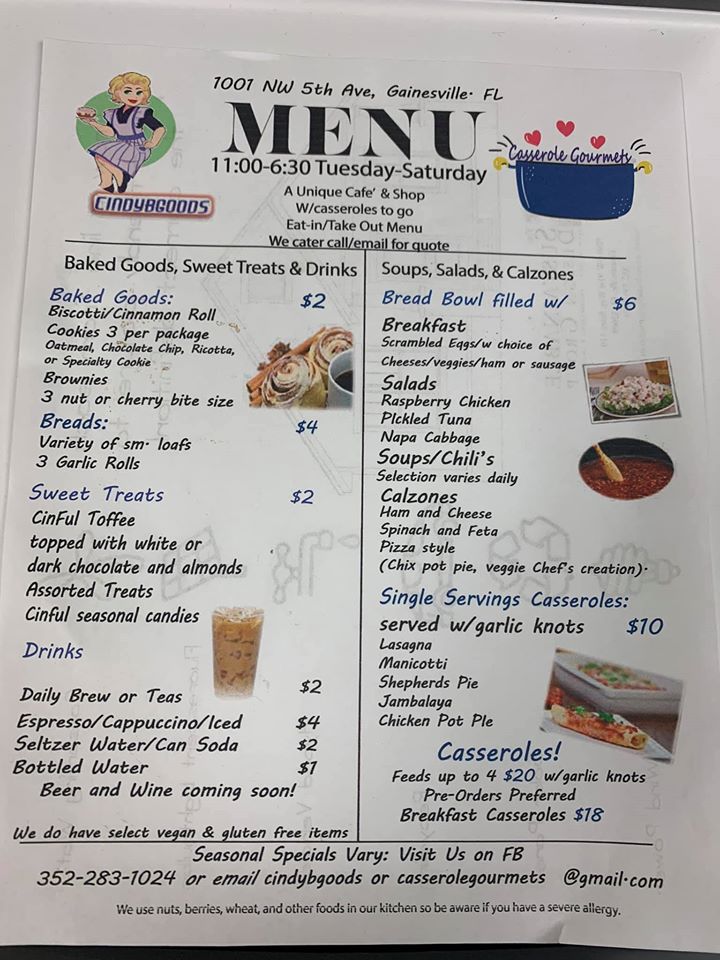 1001 NW 5th Ave, Gainesville. FL
MENU
11:00-6:30 Tuesday-Saturday
A Unique Cafe' & Shop
W/casseroles to go
Eat-in/Take Out Menu
We cater call/email for quote
CINDYBGOODS
Casserole Gourmets
Baked Goods, Sweet Treats & Drinks
Baked Goods: $2
Biscotti/Cinnamon Roll
Cookies 3 per package
Oatmeal, Chocolate Chip, Ricotta,
or Specialty Cookie
Brownies
3 nut or cherry bite size
Breads: $4
Variety of sm. loafs
3 Garlic Rolls
Sweet Treats $2
CinFul Toffee
topped with white or
dark chocolate and almonds
Assorted Treats
Cinful seasonal candies
Drinks
Daily Brew or Teas $2
Espresso/Cappuccino/Iced $4
Seltzer Water/Can Soda $2
Bottled Water $1
Beer and Wine coming soon!
We do have select vegan & gluten free items
Soups, Salads, & Calzones
Bread Bowl filled w/ $6
Breakfast
Scrambled Eggs/w choice of
Cheeses/veggies/ham or sausage
Salads
Raspberry Chicken
PIckled Tuna
Napa Cabbage
Soups/Chili's
Selection varies daily
Calzones
Ham and Cheese
Spinach and Feta
Pizza style
(Chix pot pie, veggie Chef's creation).
Single Servings Casseroles:
served w/garlic knots $10
Lasagna
Manicotti
Shepherds Pie
Jambalaya
Chicken Pot PIe
Casseroles!
Feeds up to 4 $20 w/garlic knots
Pre-Orders Preferred
Breakfast Casseroles $18
Seasonal Specials Vary: Visit Us on FB
352-283-1024 or email cindybgoods or casserolegourmets @gmail.com
We use nuts, berries, wheat, and other foods in our kitchen so be aware if you have a severe allergy.